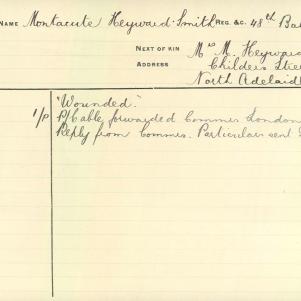 NAME Montacute Heyward-Smith REG. &C. 48th Bat
NEXT OF KIN Mrs M. Heyward
ADDRESS Childers Stree
North Adelaid
1/P "Wounded."
P/Cable forwarded Commrs London
Reply from Commrs. Particulars sent